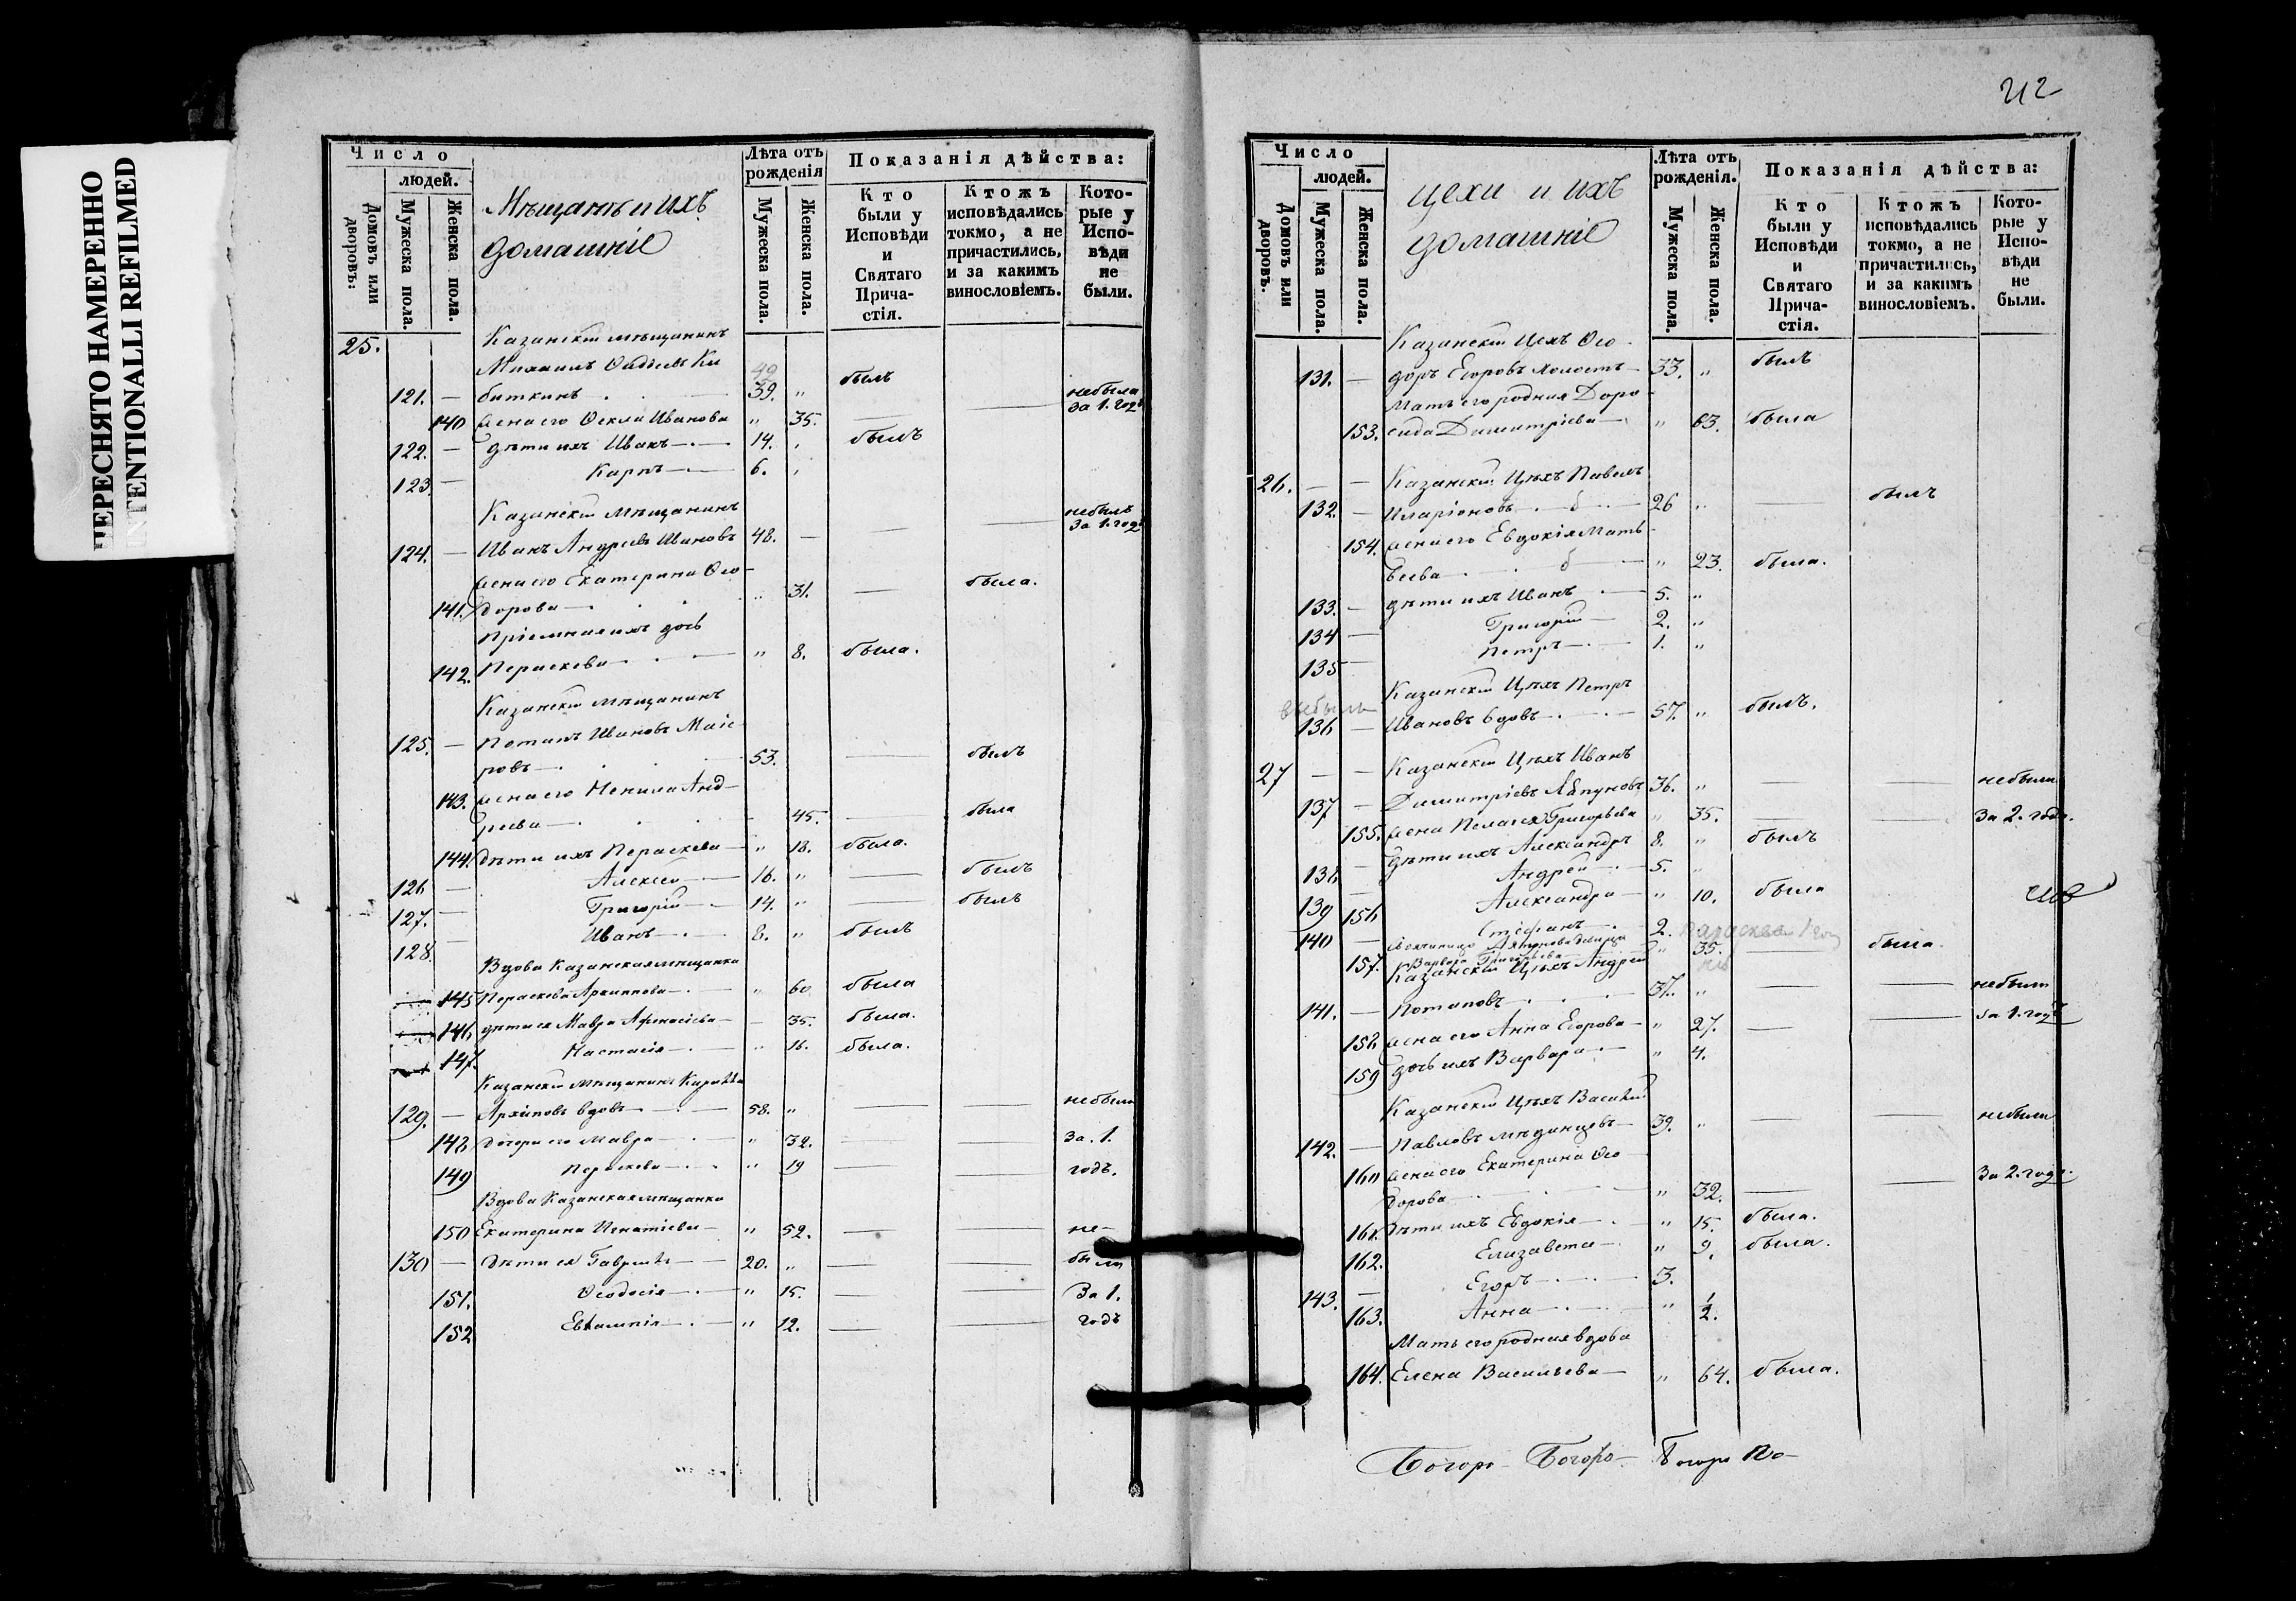 ПЕРЕСНЯТО НАМЕРЕННО
INTENTIONALLI REFILMED
Число
людей.
Домовъ или дворовъ:
Мужеска пола.
Женска пола.
Мѣщанъ и ихъ
домашніе
Лѣта отъ рожденія
Мужеска пола.
Женска пола.
Показанія дѣйства:
Кто были у Исповѣди и Святаго Прича-стія.
Ктожъ исповѣдались токмо, а не причастились, и за какимъ винословіемъ.
Кото-рые у Испо-вѣди не были.
25. Казанскій мѣщанинъ
Михаилъ 49
121. — биткинъ 39. " былъ небыли
140 жена его Ѳекла Иванова " 35. за 1. годъ
122. — дѣти ихъ Иванъ 14. былъ
123. — Карпъ 6.
Казанскій мѣщанинъ небылъ
124. — Иванъ Андреевъ Ивановъ 48. — за 1. годъ
жена его Екатерина Ѳео-
141. дорова " 31. — была.
Пріемная ихъ дочь
142. Параскева " 8. была.
Казанскій мѣщанинъ
125. — Потапъ Ивановъ Маіо-
ровъ 53. — былъ
143. жена его Ненила Анд-
реева 45. — была
144. дѣти ихъ Параскева " 18. была.
126 — Алексей 16. " — былъ
127. — Григорій 14. " — былъ
128. — Иванъ 8. " былъ
Вдова Казанская мѣщанка
145 Параскева Архипова " 60 была
146 дѣти ея Мавра Афанасіева — 35. была.
147. Настасія " 16. была.
Казанскій мѣщанинъ
129. — Архиповъ вдовъ 58. " — — небыли
148 Дочери его Мавра " 32. — — за. 1.
149 Параскева " 19 — — годъ.
Вдова Казанская мѣщанка
150 Екатерина Игнатіева " 52. — — не-
130 — Дѣти ея Гавріилъ 20. " — — были
151. Ѳеодосія " 15. — — За 1.
152 Евлампія " 12. — — годъ
212
Число
людей.
Домовъ или дворовъ.
Мужеска пола.
Женска пола.
цехи и ихъ
домашніе
Лѣта отъ рожденія.
Мужеска пола.
Женска пола.
Показанія дѣйства:
Кто были у Исповѣди и Святаго Прича-стія.
Ктожъ исповѣдались токмо, а не причастились, и за какимъ винословіемъ.
Кото-рые у Испо-вѣди не были.
Казанскій Цехъ Ѳео-
131. — доръ Егоровъ холостъ 33. " былъ
Мать его родная Доро-
153. Димитріева " 63. была
26. — — Казанскій Цѣхъ Павелъ
132. — Иларіоновъ 26 " — былъ
154. жена его Евдокія Матѳ-
ѣева " 23. была.
133. — дѣти ихъ Иванъ 5. "
134 — Григорій 2. "
135 — Петръ 1. "
Казанскій Цѣхъ Петръ
выбылъ
136 — Ивановъ вдовъ 57. " былъ.
27 — — Казанскій Цѣхъ Иванъ
137 — Димитріевъ Ляпуновъ 36. " — — небыли
155. жена Пелагея Григорьева " 35. — — За 2. года.
138 — дѣти ихъ Александръ 8. " былъ
139 — Андрей 5. "
156 Александра " 10. была
140 — Стефанъ 2.
157. Варвара Григорьева " 35. — была.
Казанскій Цѣхъ Андрей
141. — Потаповъ 37. " — — небыли
158 жена его Анна Егорова " 27. — — за 1. годъ
159 дочь ихъ Варвара " 4.
Казанскій Цѣхъ Василій
142. — Павловъ 39. " — — небыли
160 жена его Екатерина Ѳео
дорова " 32. — — За 2. года.
161. Дѣти ихъ Евдокія " 15. была.
162. Елизавета " 9. была.
143. — Егоръ 3.
163. Анна " 1/2.
Мать его родная вдова
164. Елена Васильева " 64. была.
Богоро- Богоро- Богоро